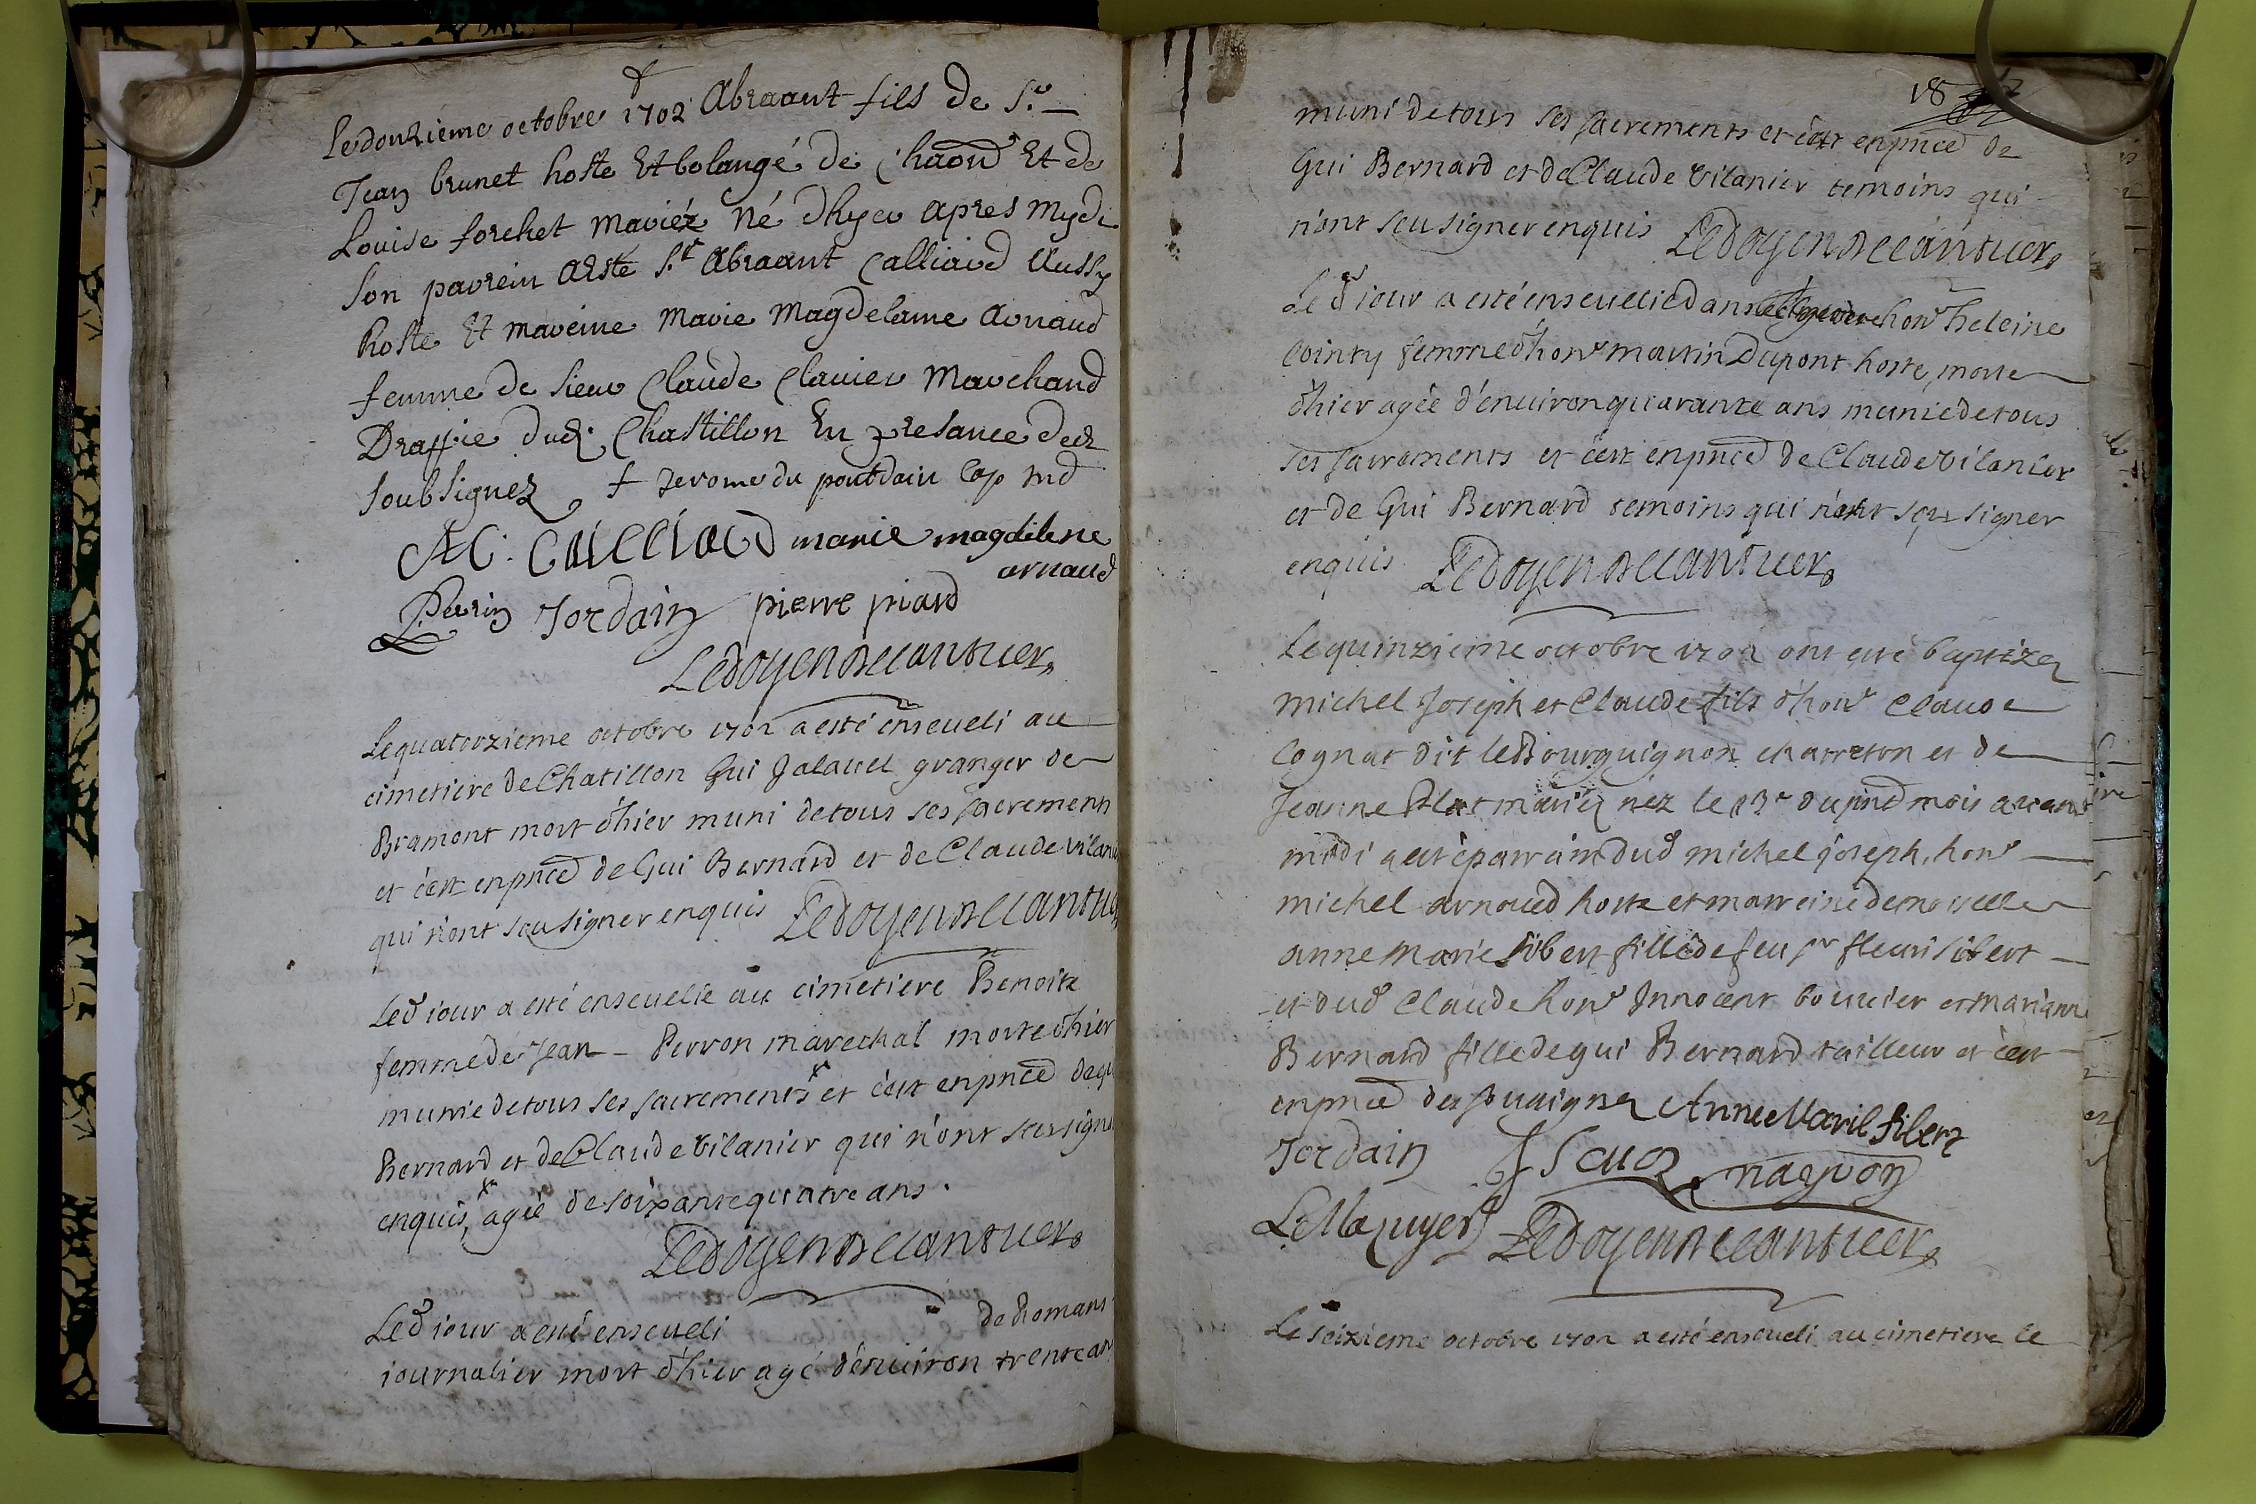 Ledouzieme octobre 1702 Abraant fils de Sr
Jean brunet hoste Et bolangé de Et de
Louise forchet mariéz Né dhyer apres mydi
Son parrein Aesté Sr Abraant Calliaud Aussy
hoste Et mareine Marie Magdelaine Arnaud
femme de Sieur Claude Clauier Marchand
Drappie dud. Chastillon En presance deds
Soubsignez
AC. Cailliaud marie magdilene
arnaud
Perrin Jordain pierre piard
Ledoyen Decantuer
Lequatorzieme octobre 1702 a esté enseueli au
cimetiere de Chatillon Gui Jalauel granger de
Bramont mort d'hier muni detous ses sacrements
et c'est enpnce de Gui Bernard et de Claude vilan
qui n'ont seu signer enquis Ledoyen Decantue
Led iour a esté enseuelie au cimetiere Benoite
femme de Jean - Perron marechal morte d'hier
munie detous ses sacrements x et c'est enpnce degu
Bernard et de Claude vilanier qui n'ont seu sign
enquis, x agée de soixante quatre ans.
Ledoyen Decantuer
Led iour a esté enseueli de Romans
iournalier mort d'hier agé d'enuiron trente an
18
muni detous ses sacrements et c'est enpnce de
Gui Bernard et de Claude vilanier temoins qui
n'ont seu signer enquis Ledoyen Decantuer
Led iour a esté enseuelie dans honr heleine
Cointy femme d'honr martin Dupont hoste, morte
d'hier agée d'enuiron quarante ans munie detous
ses sacrements et c'est enpnce de Claude vilanier
et de Gui Bernard temoins qui n'ont seu signer
enquis Ledoyen Decantuer
Lequinzieme octobre 1702 ont esté baptizez
michel Joseph et Claude fils d'honr Claude
Cognat dit le Bourguignon charreton et de
Jeanne Plat mariez néz le 13e dupnt mois auant
midi a esté parrain dud michel joseph, honr
michel arnaud hoste et marreine demoiselle
anne Marie Sibert fille de feu sr fleuri sibert
et dud Claude honr Innocent bouuier et marianne
Bernard fille de gui Bernard tailleur et c'est
enpnce des Anne Marie Sibert
Jordain nayron
Ledoyen Decantuer
Le seizieme octobre 1702 a esté enseueli au cimetiere le